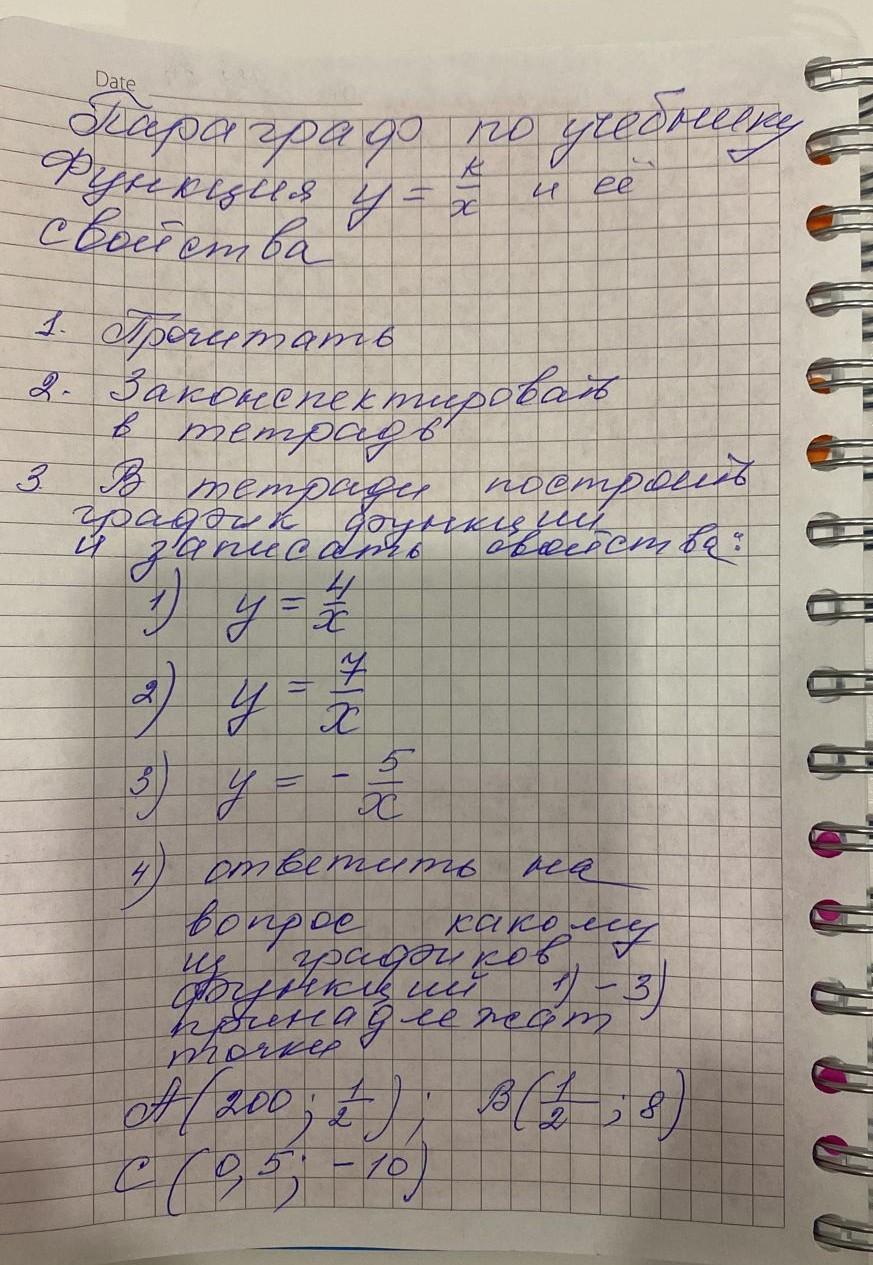 Date
Параграф по учебнику
Функция y = к/x и её
свойства
1. Прочитать
2. Законспектировать
в тетрадь
3. В тетради построить
график функции
и записать свойства:
1) y = 4/x
2) y = 7/x
3) y = - 5/x
4) ответить на
вопрос какому
из графиков
функций 1) - 3)
принадлежат
точки
A(200; 1/2); B(1/2; 8)
C(0,5; -10)